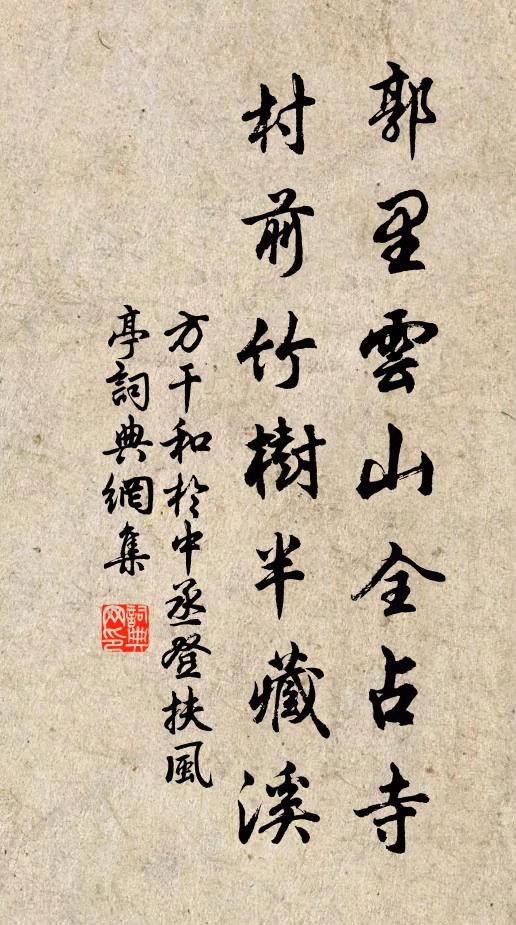 郭里雲山全占寺
村前竹樹半藏溪
方干和於中丞登扶風
亭詞典網集
詞典
网印